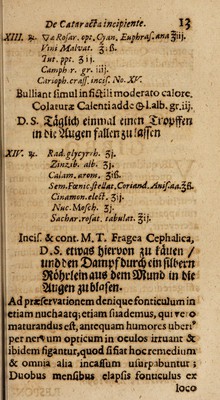 De Cataracta incipiente. 13
XIII. ℞. ▽æ Rosar. opt. Cyan. Euphras. ana ℥iij.
Vini Malvat. ℥iß.
Tut. ppt. ʒij.
Camph r. gr. iiij.
Carioph. craff. incis. No. XV.
Bulliant simul in fictili moderato calore.
Colaturæ Calenti adde ⊖ l.alb. gr. iij.
D. S. Täglich einmal einen Tropffen
in die Augen fallen zu lassen
XIV. ℞. Rad. glycyrrh. ʒj.
Zinzib. alb. ʒj.
Calam. arom. ʒiß.
Sem. Fœnic. stellat. Coriand. Anis. aa. ʒß.
Cinamom. elect. ʒij.
Nuc. Mosch. ʒj.
Sachar. rosat. tabulat. ℥ij.
Incis. & cont. M. T. Fragea Cephalica,
D. S. etwas hiervon zu käuen /
und den Dampf durch ein silbern
Röhrlein aus dem Mund in die
Augen zu blasen.
Ad præservationem denique fonticulum in
etiam nucha atq; etiam suademus, qui ve-
maturandus est, antequam humores uberi
per nervum opticum in oculos irruant &
ibidem figantur, quod si fiat hoc remedium
& omnia alia incassum usurpabuntur ;
Duobus mensibus elapsis fonticulus ex
loco